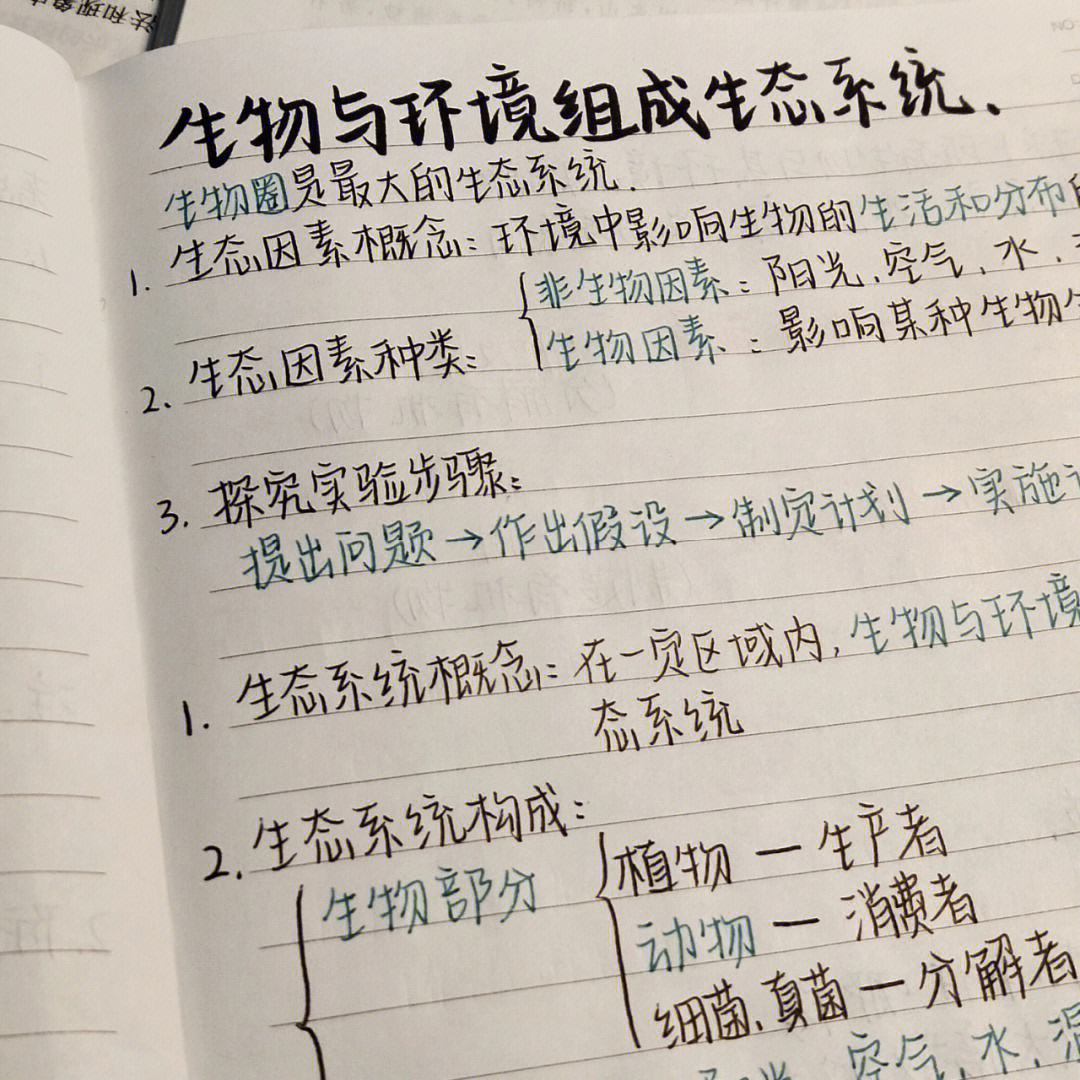 法和现象
生物与环境组成生态系统.
生物圈是最大的生态系统.
1. 生态因素概念:环境中影响生物的生活和分布
2. 生态因素种类:
非生物因素:阳光.空气.水.
生物因素:影响某种生物
3. 探究实验步骤:
提出问题→作出假设→制定计划→实施
1. 生态系统概念:在一定区域内,生物与环境
态系统
2. 生态系统构成:
生物部分
植物—生产者
动物—消费者
细菌.真菌—分解者
空气.水.温